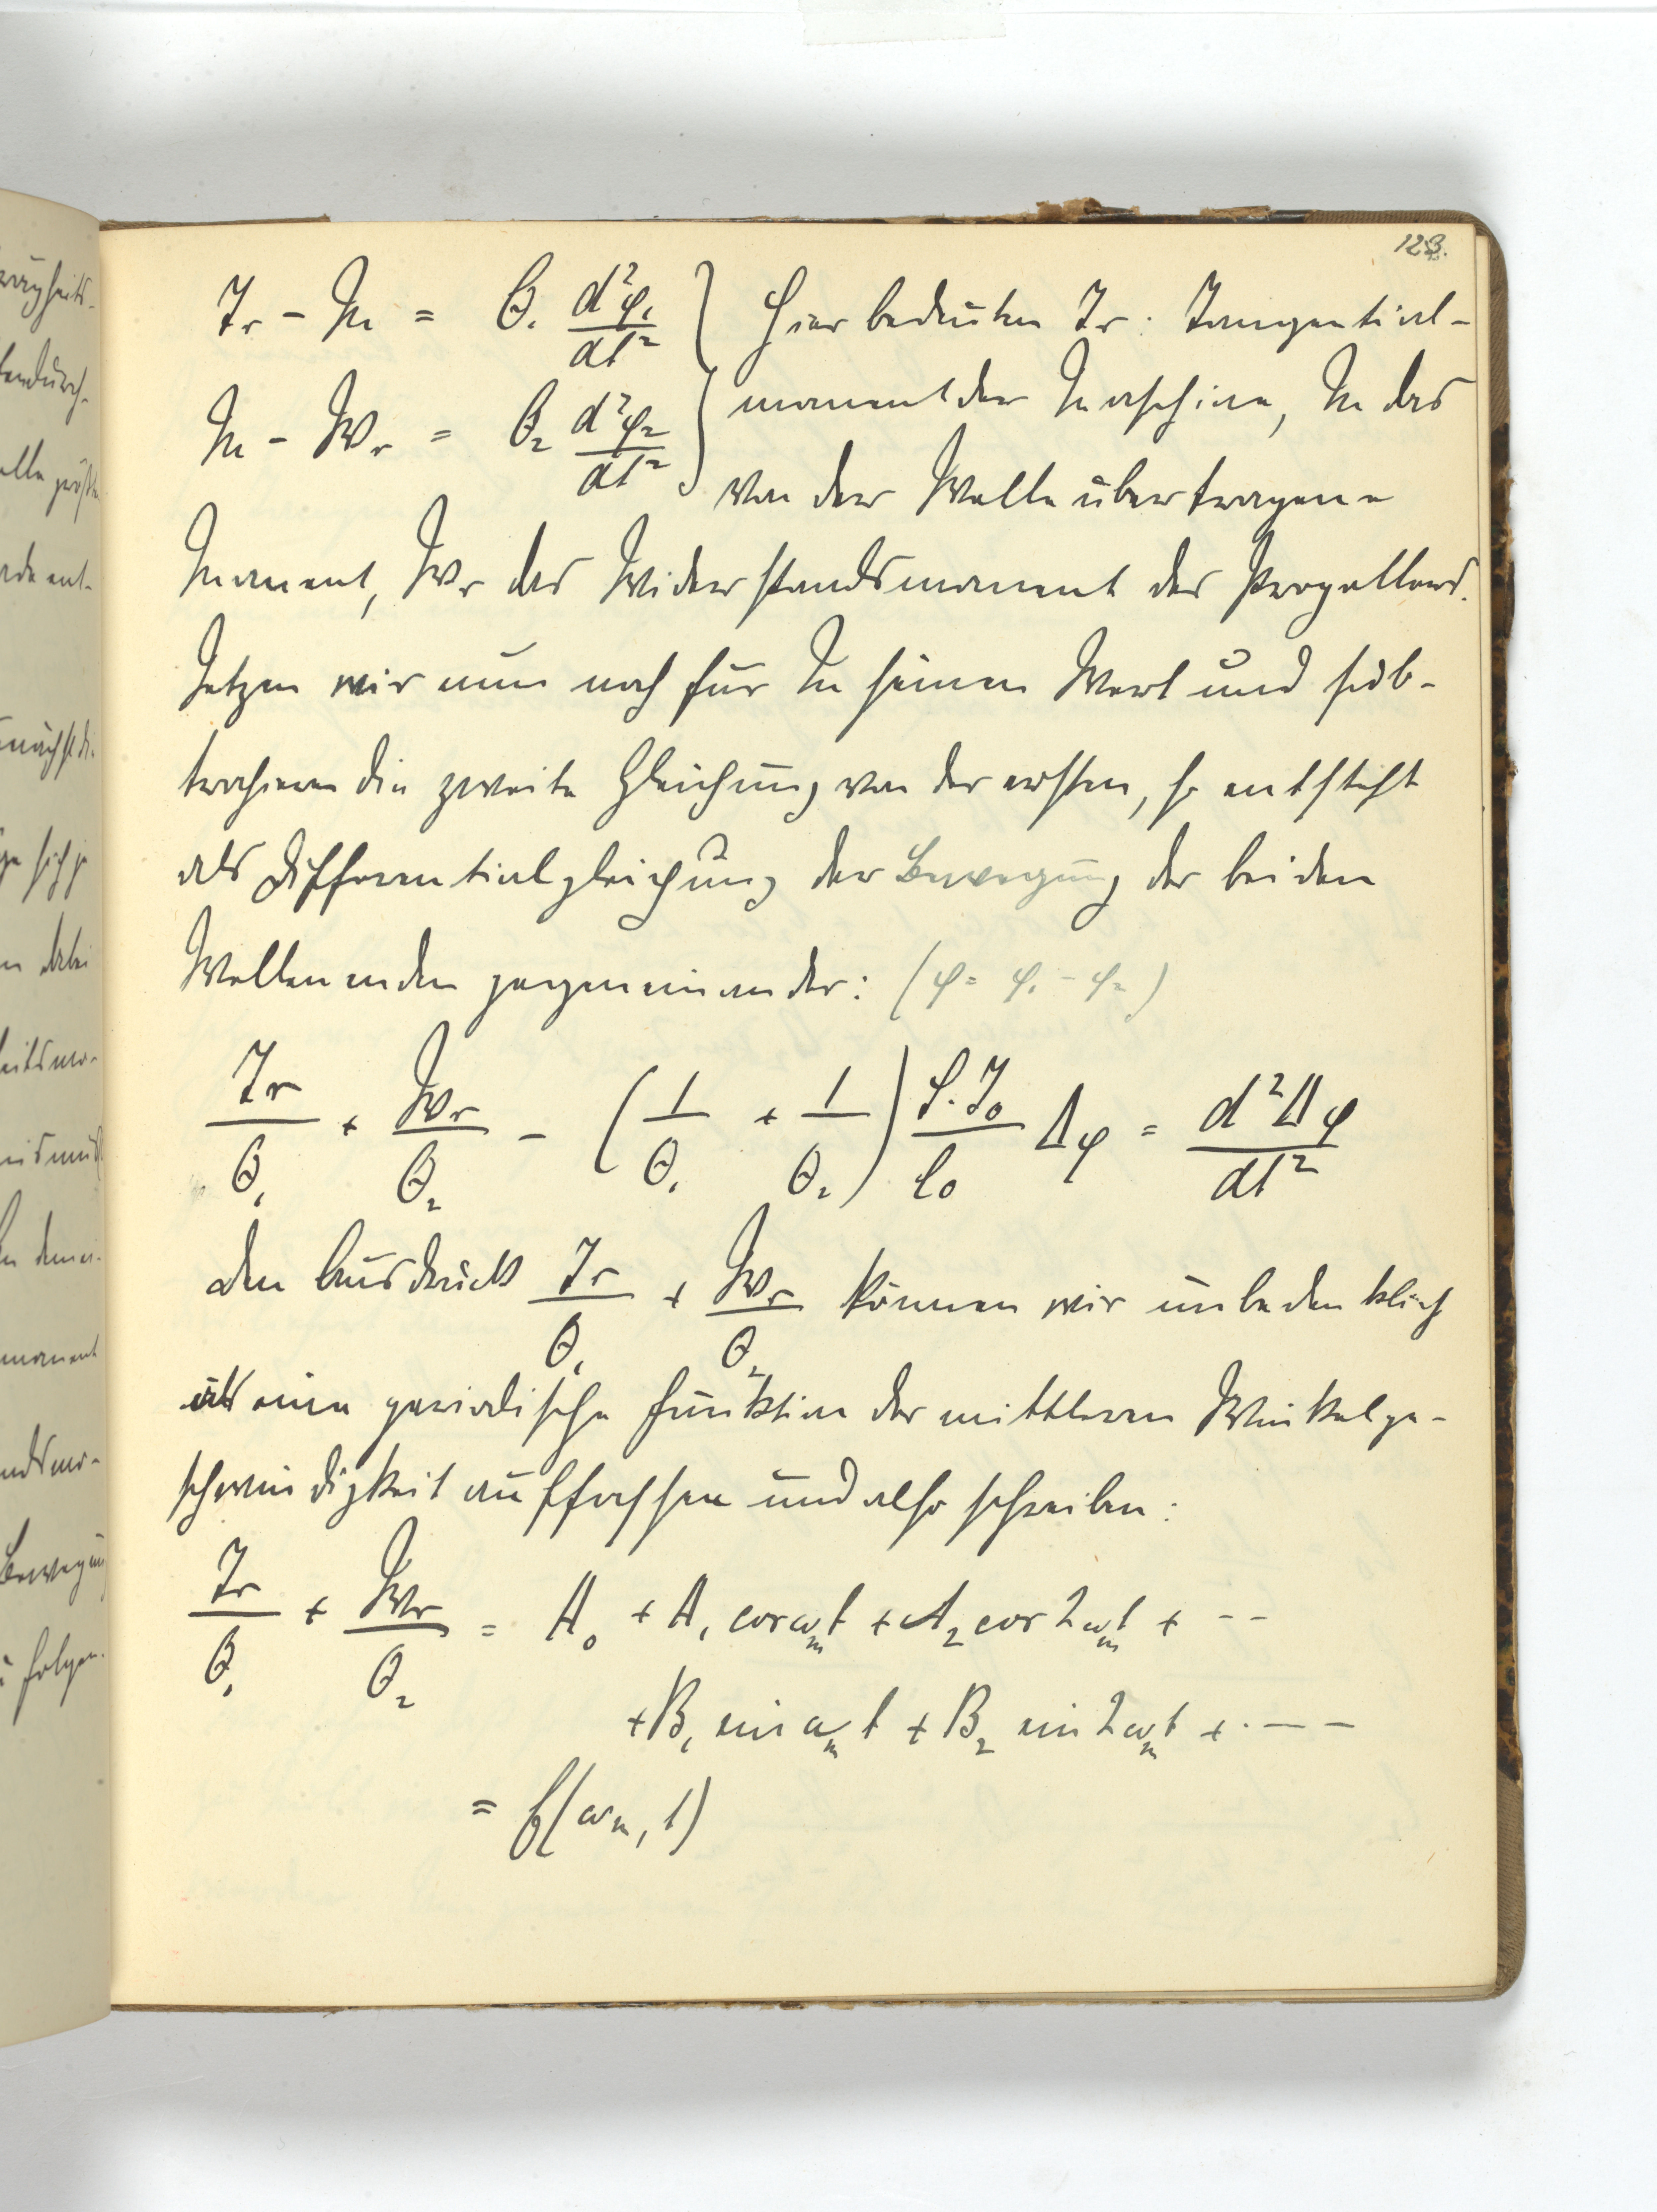 123.
Tr - M = Θ₁ d²φ₁/dt² } Hier bedeuten Tr: Tangential-
M - Wr = Θ₂ d²φ₂/dt² } moment der Maschine, M das
von der Welle übertragene
Moment, Wr das Widerstandsmoment des Propellers.
Setzen wir nun noch für M seinen Wert und sub-
trahieren die zweite Gleichung von der ersten, so entsteht
als Differentialgleichung der Bewegung der beiden
Wellenenden gegeneinander: (φ = φ₁ - φ₂)
Tr/Θ₁ + Wr/Θ₂ - (1/Θ₁ + 1/Θ₂) J₀/l₀ Δφ = d²Δφ/dt²
Den Ausdruck Tr/Θ₁ + Wr/Θ₂ können wir unbedenklich
als eine periodische Funktion der mittleren Winkelge-
schwindigkeit auffassen und also schreiben:
Tr/Θ₁ + Wr/Θ₂ = A₀ + A₁ cos ωₘt + A₂ cos 2ωₘt + --
+ B₁ sin ωₘt + B₂ sin 2ωₘt + . - -
= f(ωₘ, t)